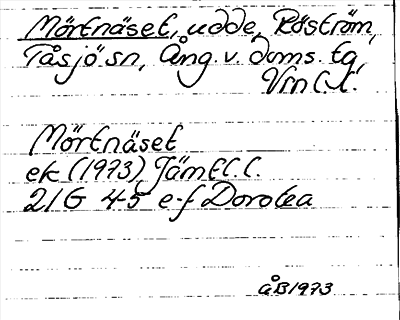 Mörtnäset, udde, Röström,
Tåsjö sn, Ång. v. doms. tg,
Vrn l. l.
Mörtnäset
ek (1973) Jämtl. l.
21G 4-5 e-f Dorotea
ÅB 1973